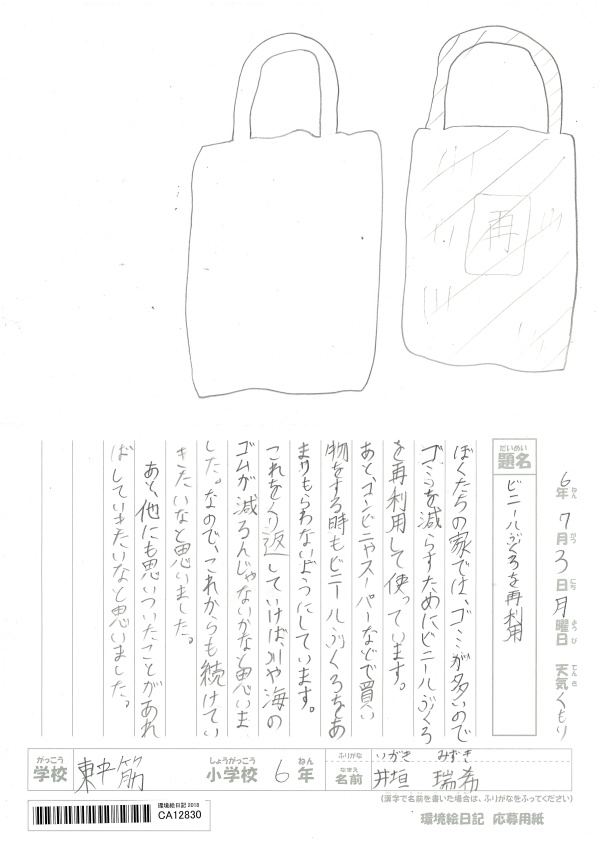 再
だいめい
題名
ビニールぶくろを再利用
6年 7月 3日 月曜日 天気 くもり
ねん がつ にち ようび てんき
ぼくたちの家では、ゴミが多いので
ゴミを減らすためにビニールぶくろ
を再利用して使っています。
あと、コンビニやスーパーなどで買い
物をする時もビニールぶくろをあ
まりもらわないようにしています。
これをくり返していけば、川や海の
ゴムが減るんじゃないかなと思いま
した。なので、これからも続けてい
きたいなと思いました。
あと、他にも思いついたことがあれ
ばしていきたいなと思いました。
がっこう
学校
東中筋
しょうがっこう
小学校
6
ねん
年
ふりがな
いがき みずき
なまえ
名前
井垣 瑞希
(漢字で名前を書いた場合は、ふりがなをふってください)
環境絵日記 2018
CA12830
環境絵日記 応募用紙